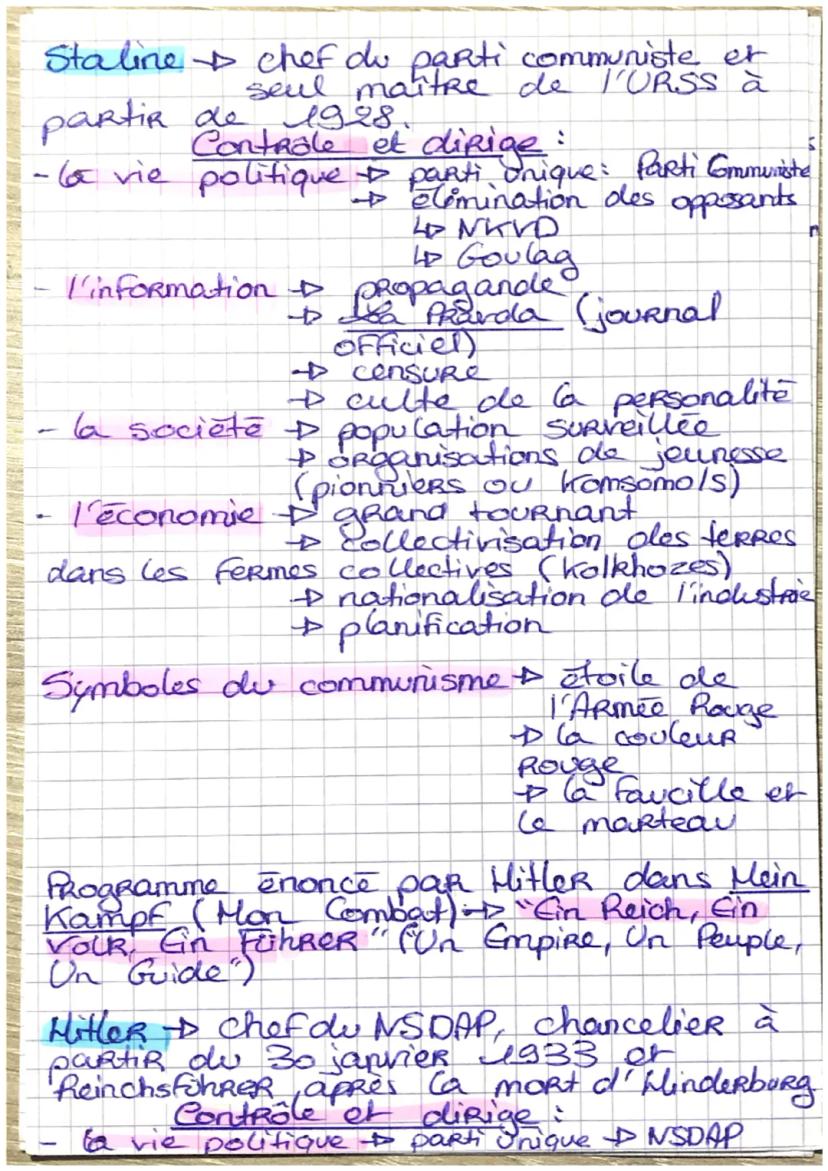 Staline → chef du parti communiste et
seul maître de l'URSS à
partir de 1928.
Contrôle et dirige :
- la vie politique → parti unique : Parti Communiste
→ élimination des opposants
↳ NKVD
↳ Goulag
- l'information → propagande
→ La Pravda (journal
officiel)
→ censure
→ culte de la personalité
- la société → population surveillée
→ organisations de jeunesse
(pionniers ou komsomols)
- l'économie → grand tournant
→ collectivisation des terres
dans les fermes collectives (kolkhozes)
→ nationalisation de l'industrie
→ planification
Symboles du communisme → étoile de
l'Armée Rouge
→ la couleur
rouge
→ la faucille et
le marteau
Programme énoncé par Hitler dans Mein
Kampf (Mon Combat) → "Ein Reich, Ein
Volk, Ein Führer" ("Un Empire, Un Peuple,
Un Guide")
Hitler → chef du NSDAP, chancelier à
partir du 30 janvier 1933 et
Reinchsführer après la mort d'Hinderburg
Contrôle et dirige :
- la vie politique → parti unique → NSDAP